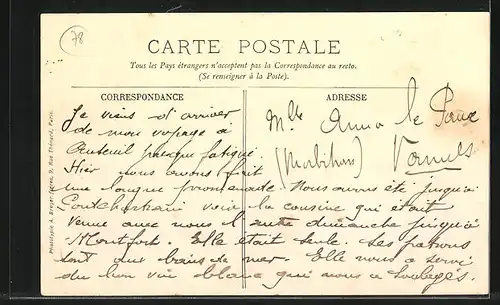 78
CARTE POSTALE
Tous les Pays étrangers n'acceptent pas la Correspondance au recto.
(Se renseigner à la Poste).
CORRESPONDANCE
Je viens d'arriver
de mon voyage à
Auteuil presque fatigué.
Hier nous avons fait
une longue promenade. Nous avons été jusqu'à
voir la cousine qui était
venue avec nous l'autre dimanche jusqu'à
Montfort. Elle était seule. Ses patrons
sont aux bains de mer. Elle nous a servi
du bon vin blanc qui nous a
ADRESSE
Mlle Anna le
(Morbihan) Vannes
Phototypie A. Breger frères, 9, Rue Thénard, Paris.